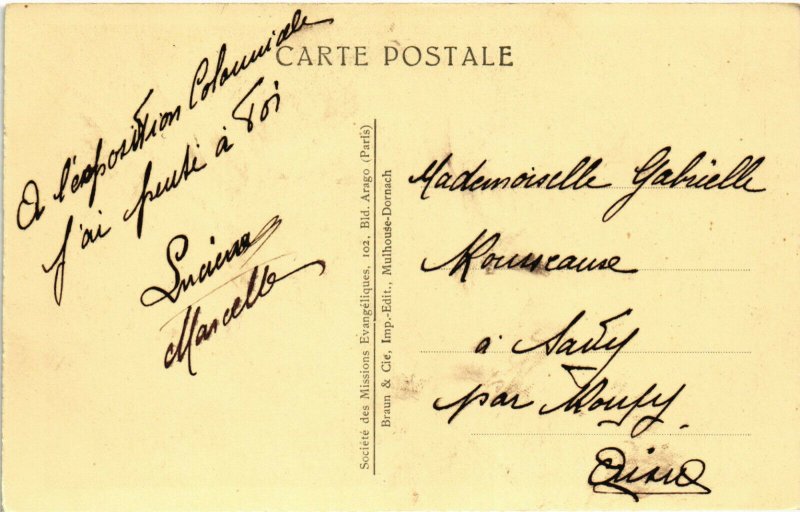 CARTE POSTALE
A l'exposition Coloniale
j'ai pensé à Toi
Lucienne
Marcelle
Société des Missions Evangéliques, 102, Bld. Arago (Paris)
Braun & Cie, Imp.-Edit., Mulhouse-Dornach
Mademoiselle Gabrielle
à
par Mouy
Oise